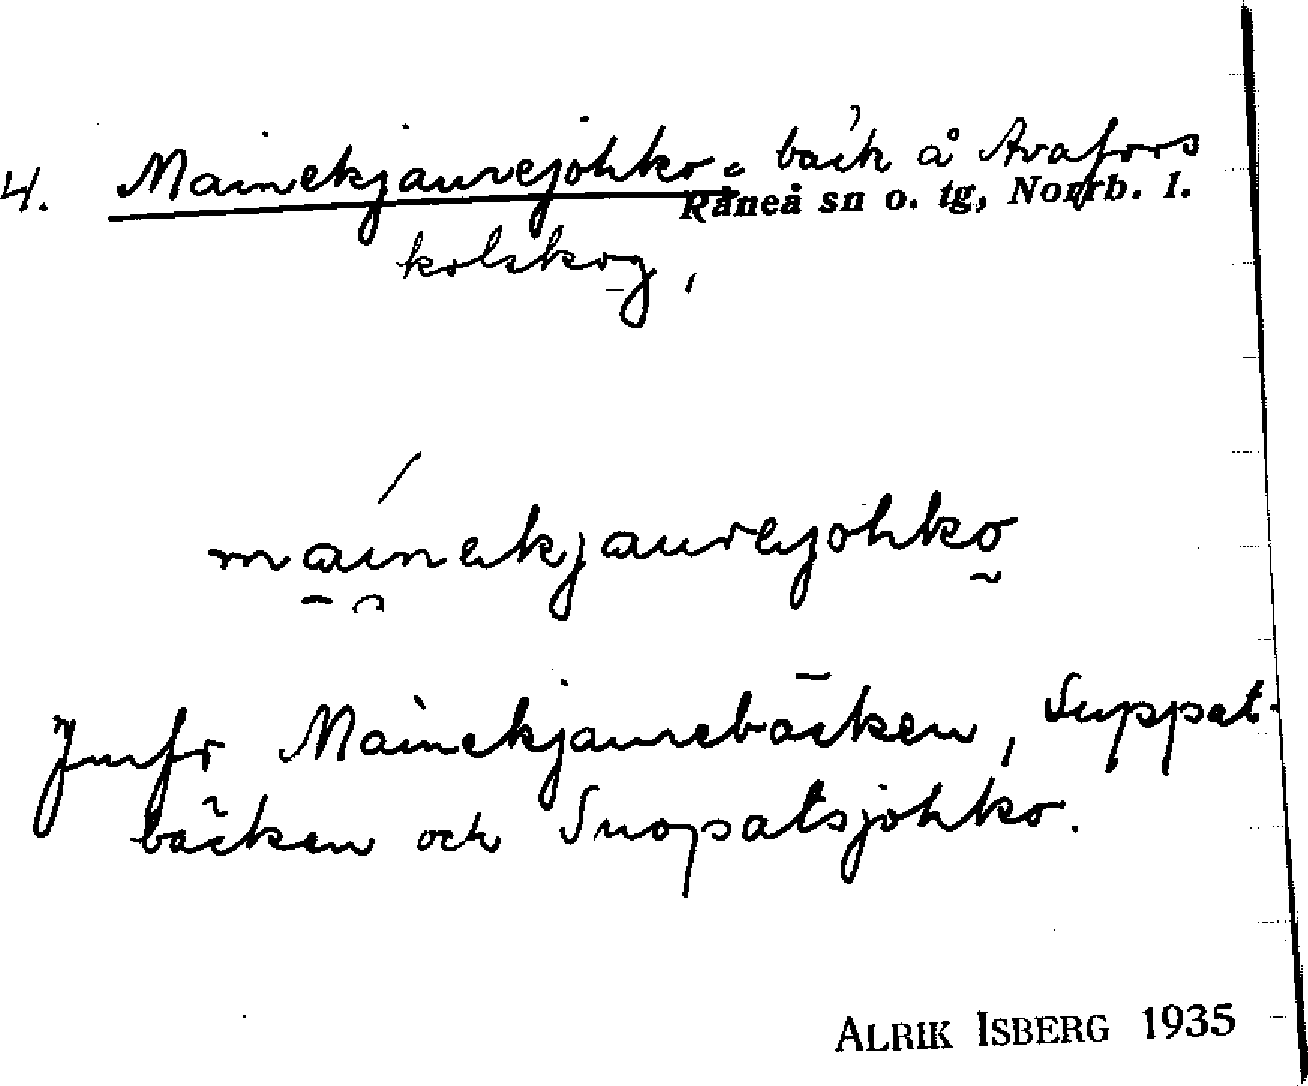 4. Mainekjaurejohko. bäck å Avafors
Råneå sn o. tg, Norrb. l.
kolskog,
máinekjaurejohko
Jmfr Mainekjaurebäcken, Suppat-
bäcken och Suopatsjohko.
ALRIK ISBERG 1935